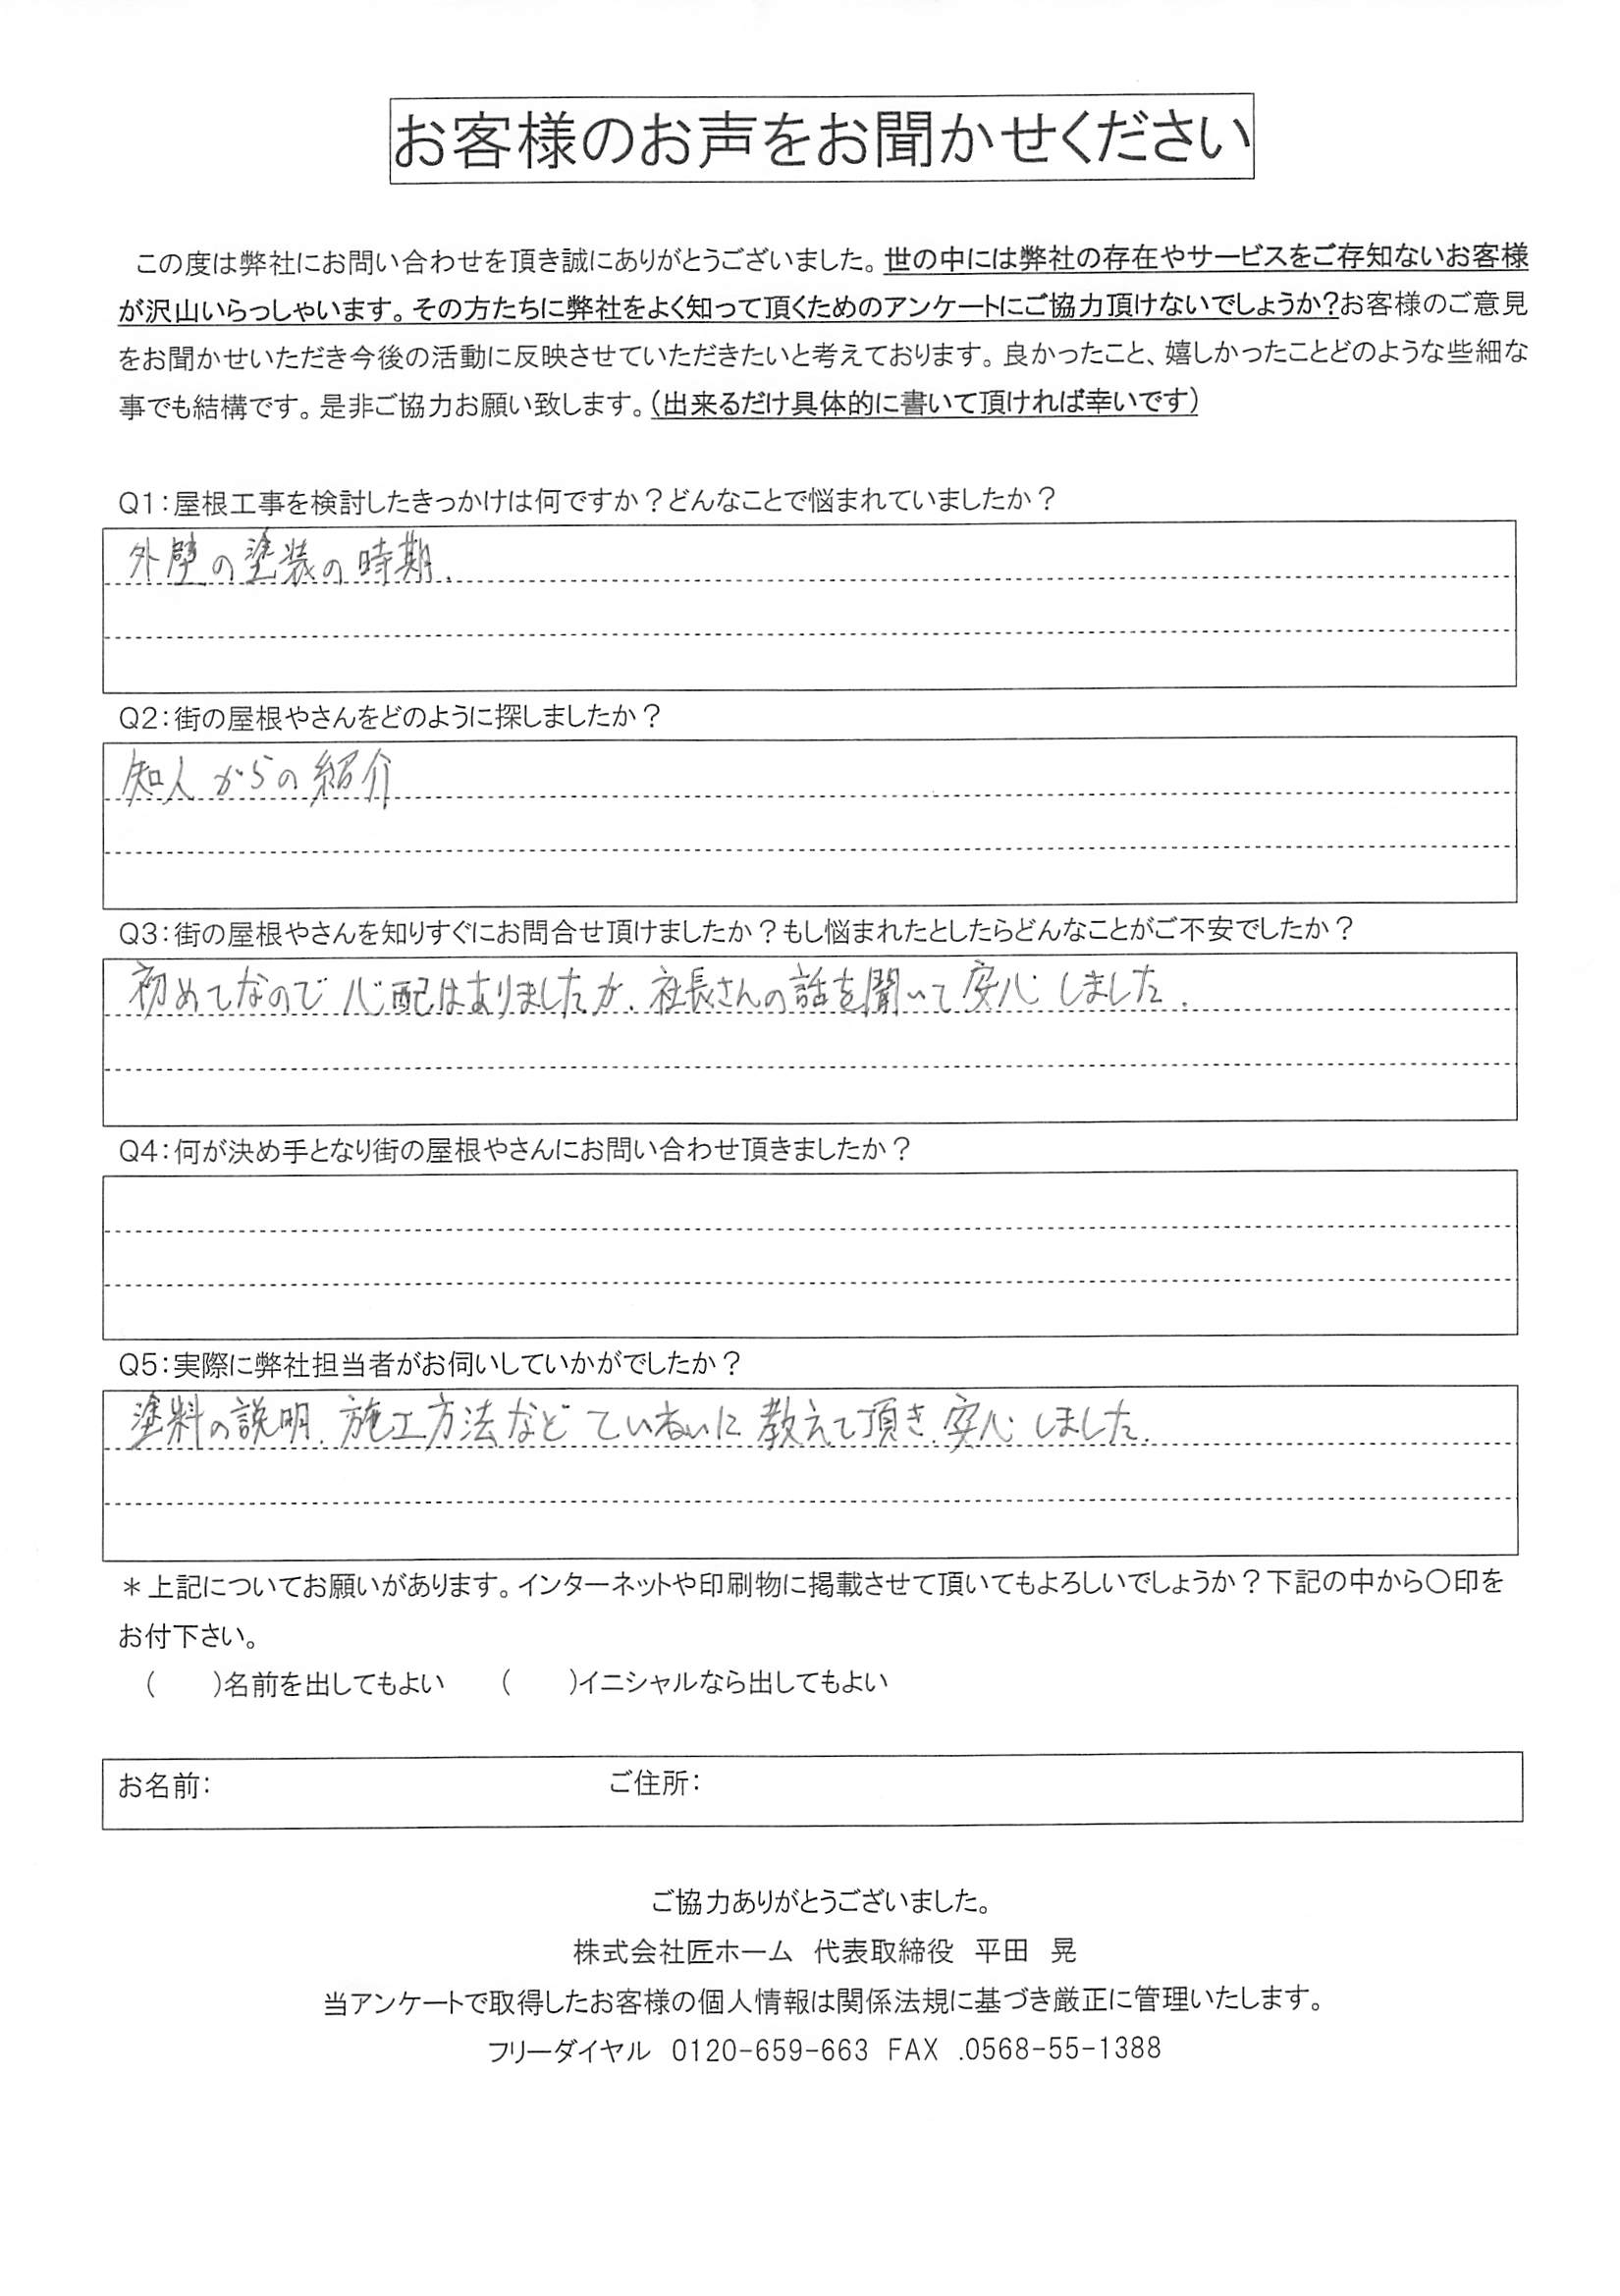 お客様のお声をお聞かせください
この度は弊社にお問い合わせを頂き誠にありがとうございました。世の中には弊社の存在やサービスをご存知ないお客様
が沢山いらっしゃいます。その方たちに弊社をよく知って頂くためのアンケートにご協力頂けないでしょうか?お客様のご意見
をお聞かせいただき今後の活動に反映させていただきたいと考えております。良かったこと、嬉しかったことどのような些細な
事でも結構です。是非ご協力お願い致します。(出来るだけ具体的に書いて頂ければ幸いです)
Q1:屋根工事を検討したきっかけは何ですか?どんなことで悩まれていましたか?
外壁の塗装の時期.
Q2:街の屋根やさんをどのように探しましたか?
知人からの紹介
Q3:街の屋根やさんを知りすぐにお問合せ頂けましたか?もし悩まれたとしたらどんなことがご不安でしたか?
初めてなので心配はありましたが、社長さんの話を聞いて安心しました.
Q4:何が決め手となり街の屋根やさんにお問い合わせ頂きましたか?
Q5:実際に弊社担当者がお伺いしていかがでしたか?
塗料の説明、施工方法などていねいに教えて頂き、安心しました.
*上記についてお願いがあります。インターネットや印刷物に掲載させて頂いてもよろしいでしょうか?下記の中から〇印を
お付下さい。
(　　)名前を出してもよい　　(　　)イニシャルなら出してもよい
お名前:　　ご住所:
ご協力ありがとうございました。
株式会社匠ホーム　代表取締役　平田　晃
当アンケートで取得したお客様の個人情報は関係法規に基づき厳正に管理いたします。
フリーダイヤル　0120-659-663 FAX .0568-55-1388